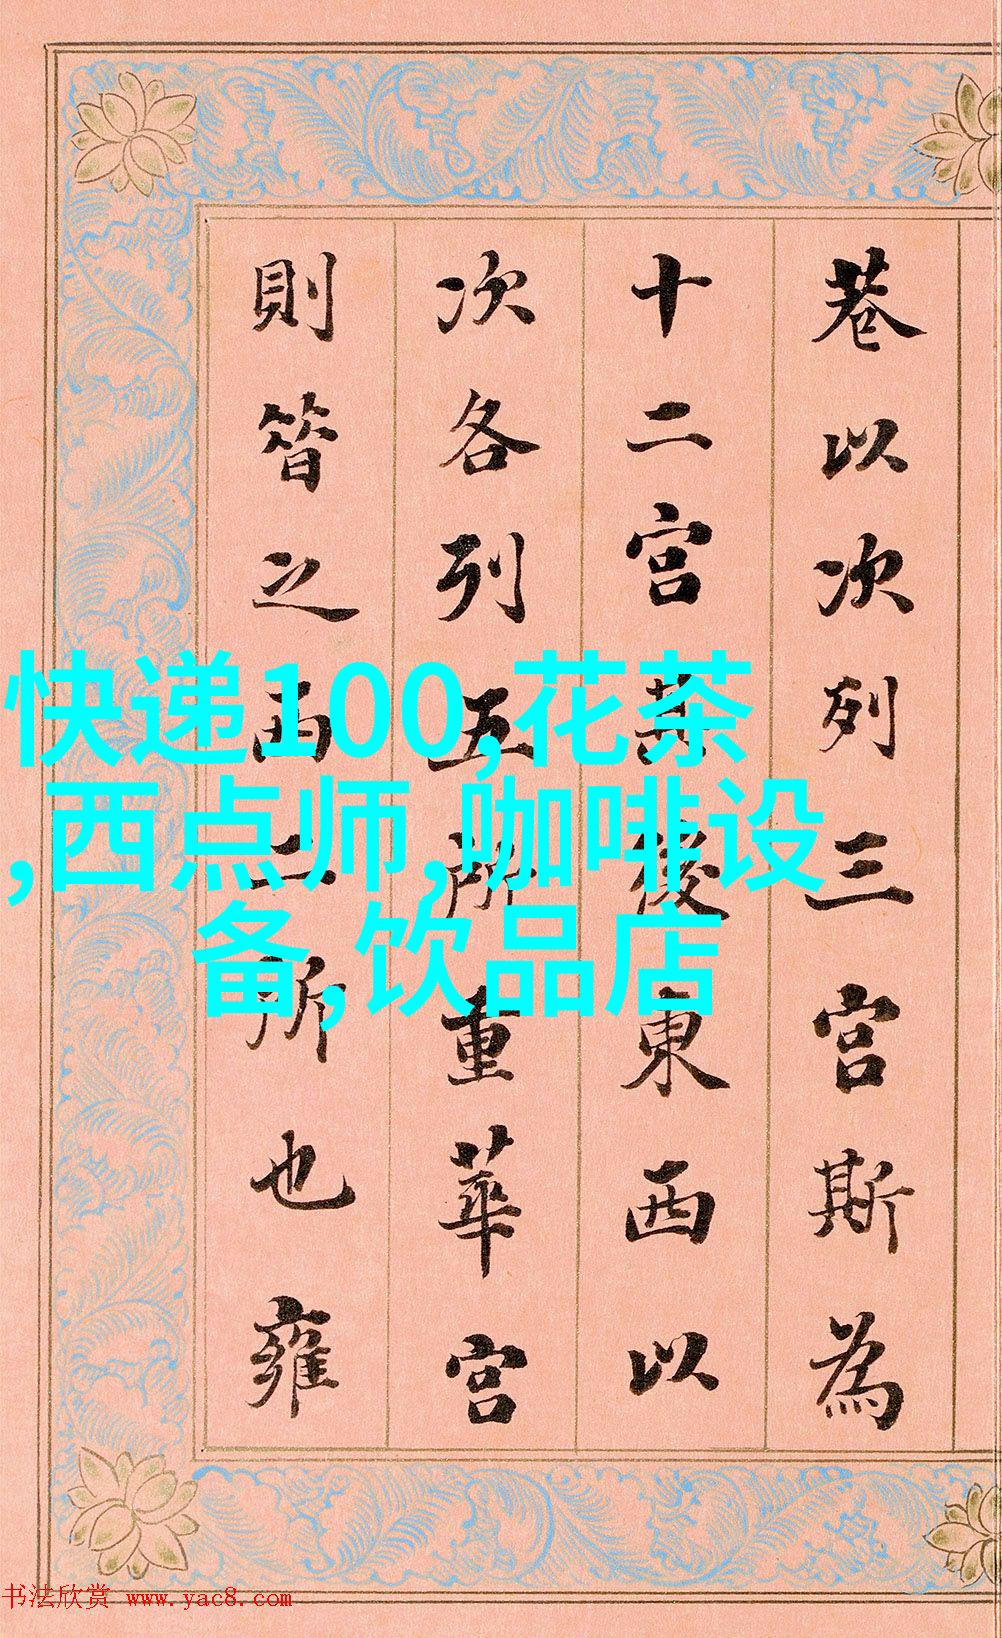 巷以次列三宮斯為
十二宮其後東西以
次各列五所重華宮
則昔之西二所也雍
快递100,花茶
,西点师,咖啡设
备,饮品店
书法欣赏 www.yac8.com